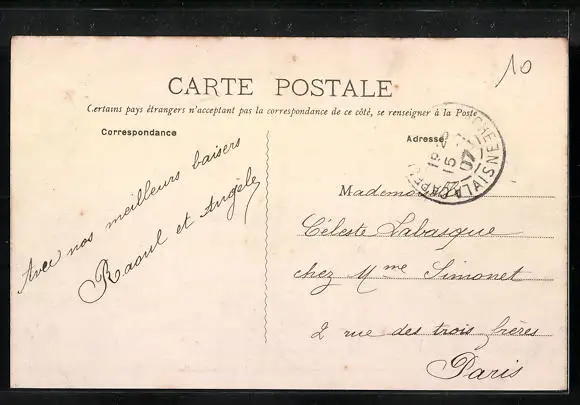 10
CARTE POSTALE
Certains pays étrangers n'acceptent pas la correspondance de ce côté, se renseigner à la Poste
Correspondance
Avec nos meilleurs baisers
Raoul et Angèle
Adresse
Mademoiselle
Céleste Labasque
chez Mme Simonet
2 rue des trois frères
Paris
15
07